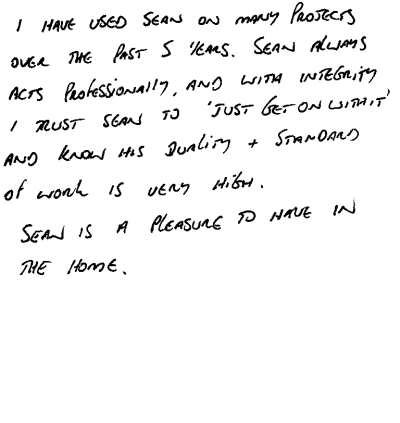 I HAVE USED SEAN ON MANY PROJECTS
OVER THE PAST 5 YEARS. SEAN ALWAYS
ACTS PROFESSIONALLY, AND WITH INTEGRITY
I TRUST SEAN TO 'JUST GET ON WITH IT'
AND KNOW HIS QUALITY + STANDARD
OF WORK IS VERY HIGH.
SEAN IS A PLEASURE TO HAVE IN
THE HOME.